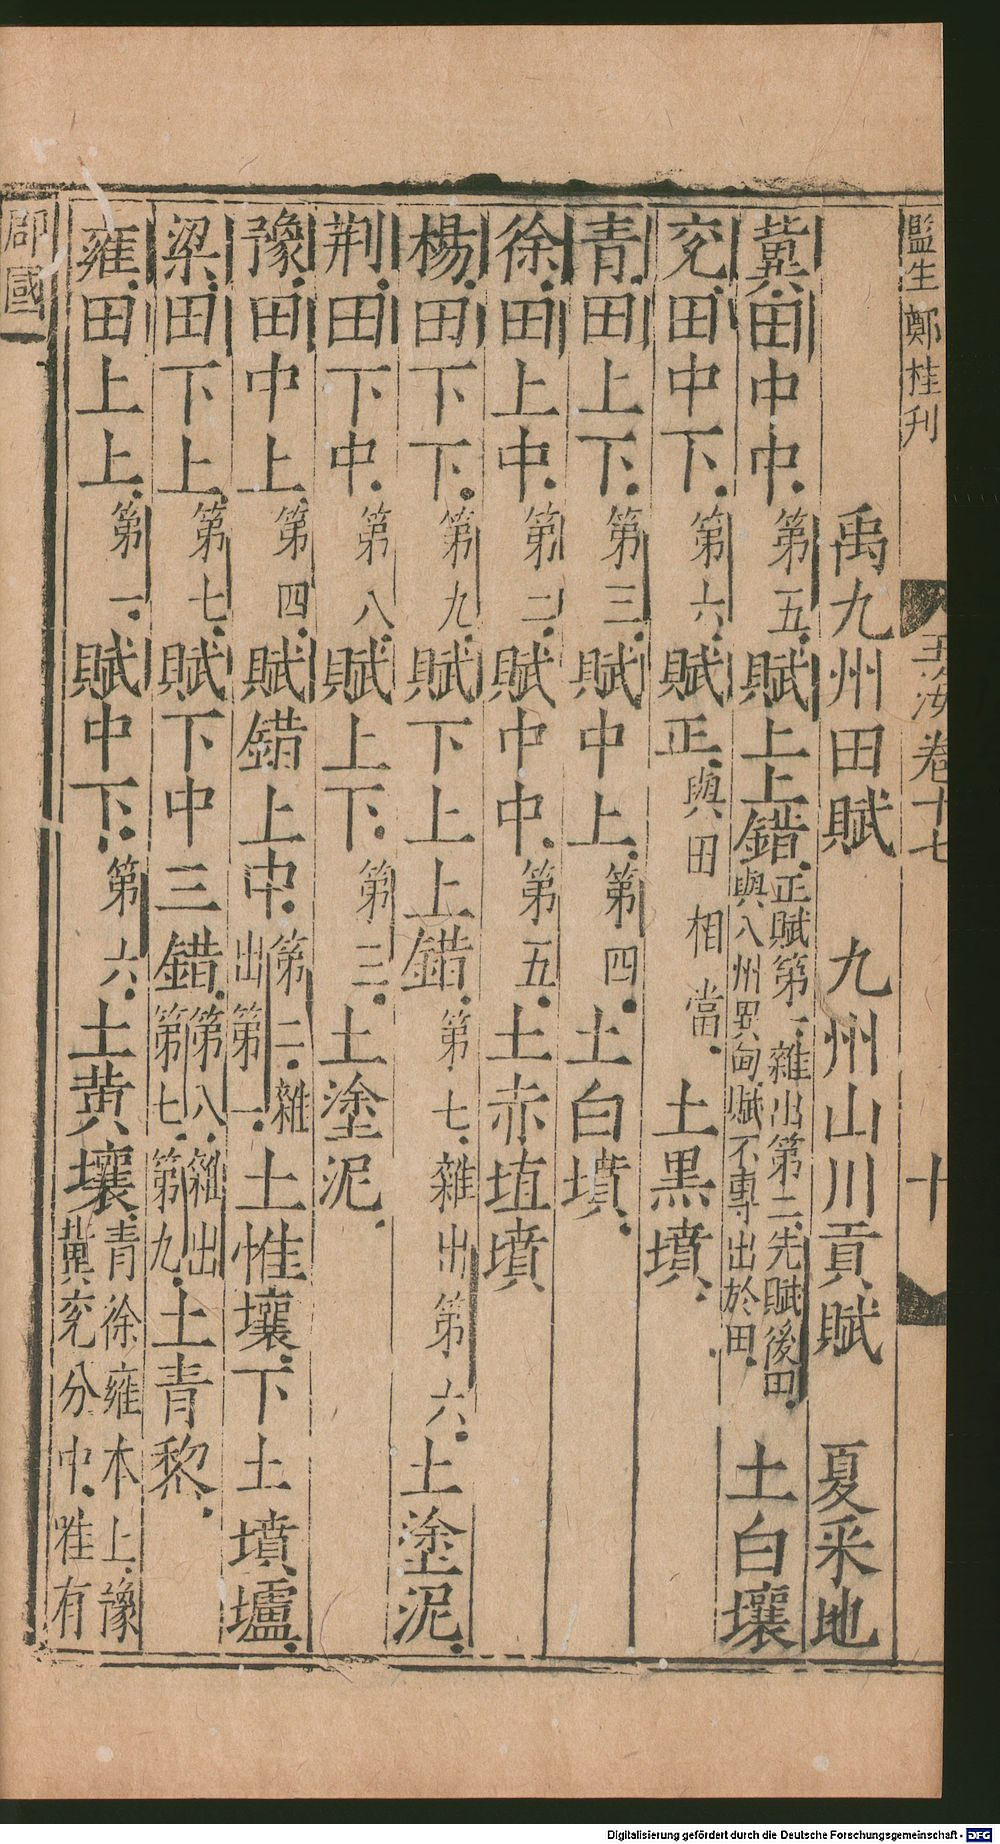 監生鄭桂刊
玉海卷十七
十
禹九州田賦 九州山川貢賦 夏采地
冀田中中第五賦上上錯正賦第一雜出第二先賦後田與八州異甸賦不專出於田土白壤
兗田中下第六賦正與田相當土黑墳
青田上下第三賦中上第四土白墳
徐田上中第二賦中中第五土赤埴墳
楊田下下第九賦下上上錯第七雜出第六土塗泥
荆田下中第八賦上下第三土塗泥
豫田中上第四賦錯上中第二雜出第一土惟壤下土墳壚
梁田下上第七賦下中三錯第八雜出第七第九土青黎
雍田上上第一賦中下第六土黄壤青徐雍本上豫冀兗分中唯有
郡國
Digitalisierung gefördert durch die Deutsche Forschungsgemeinschaft - DFG